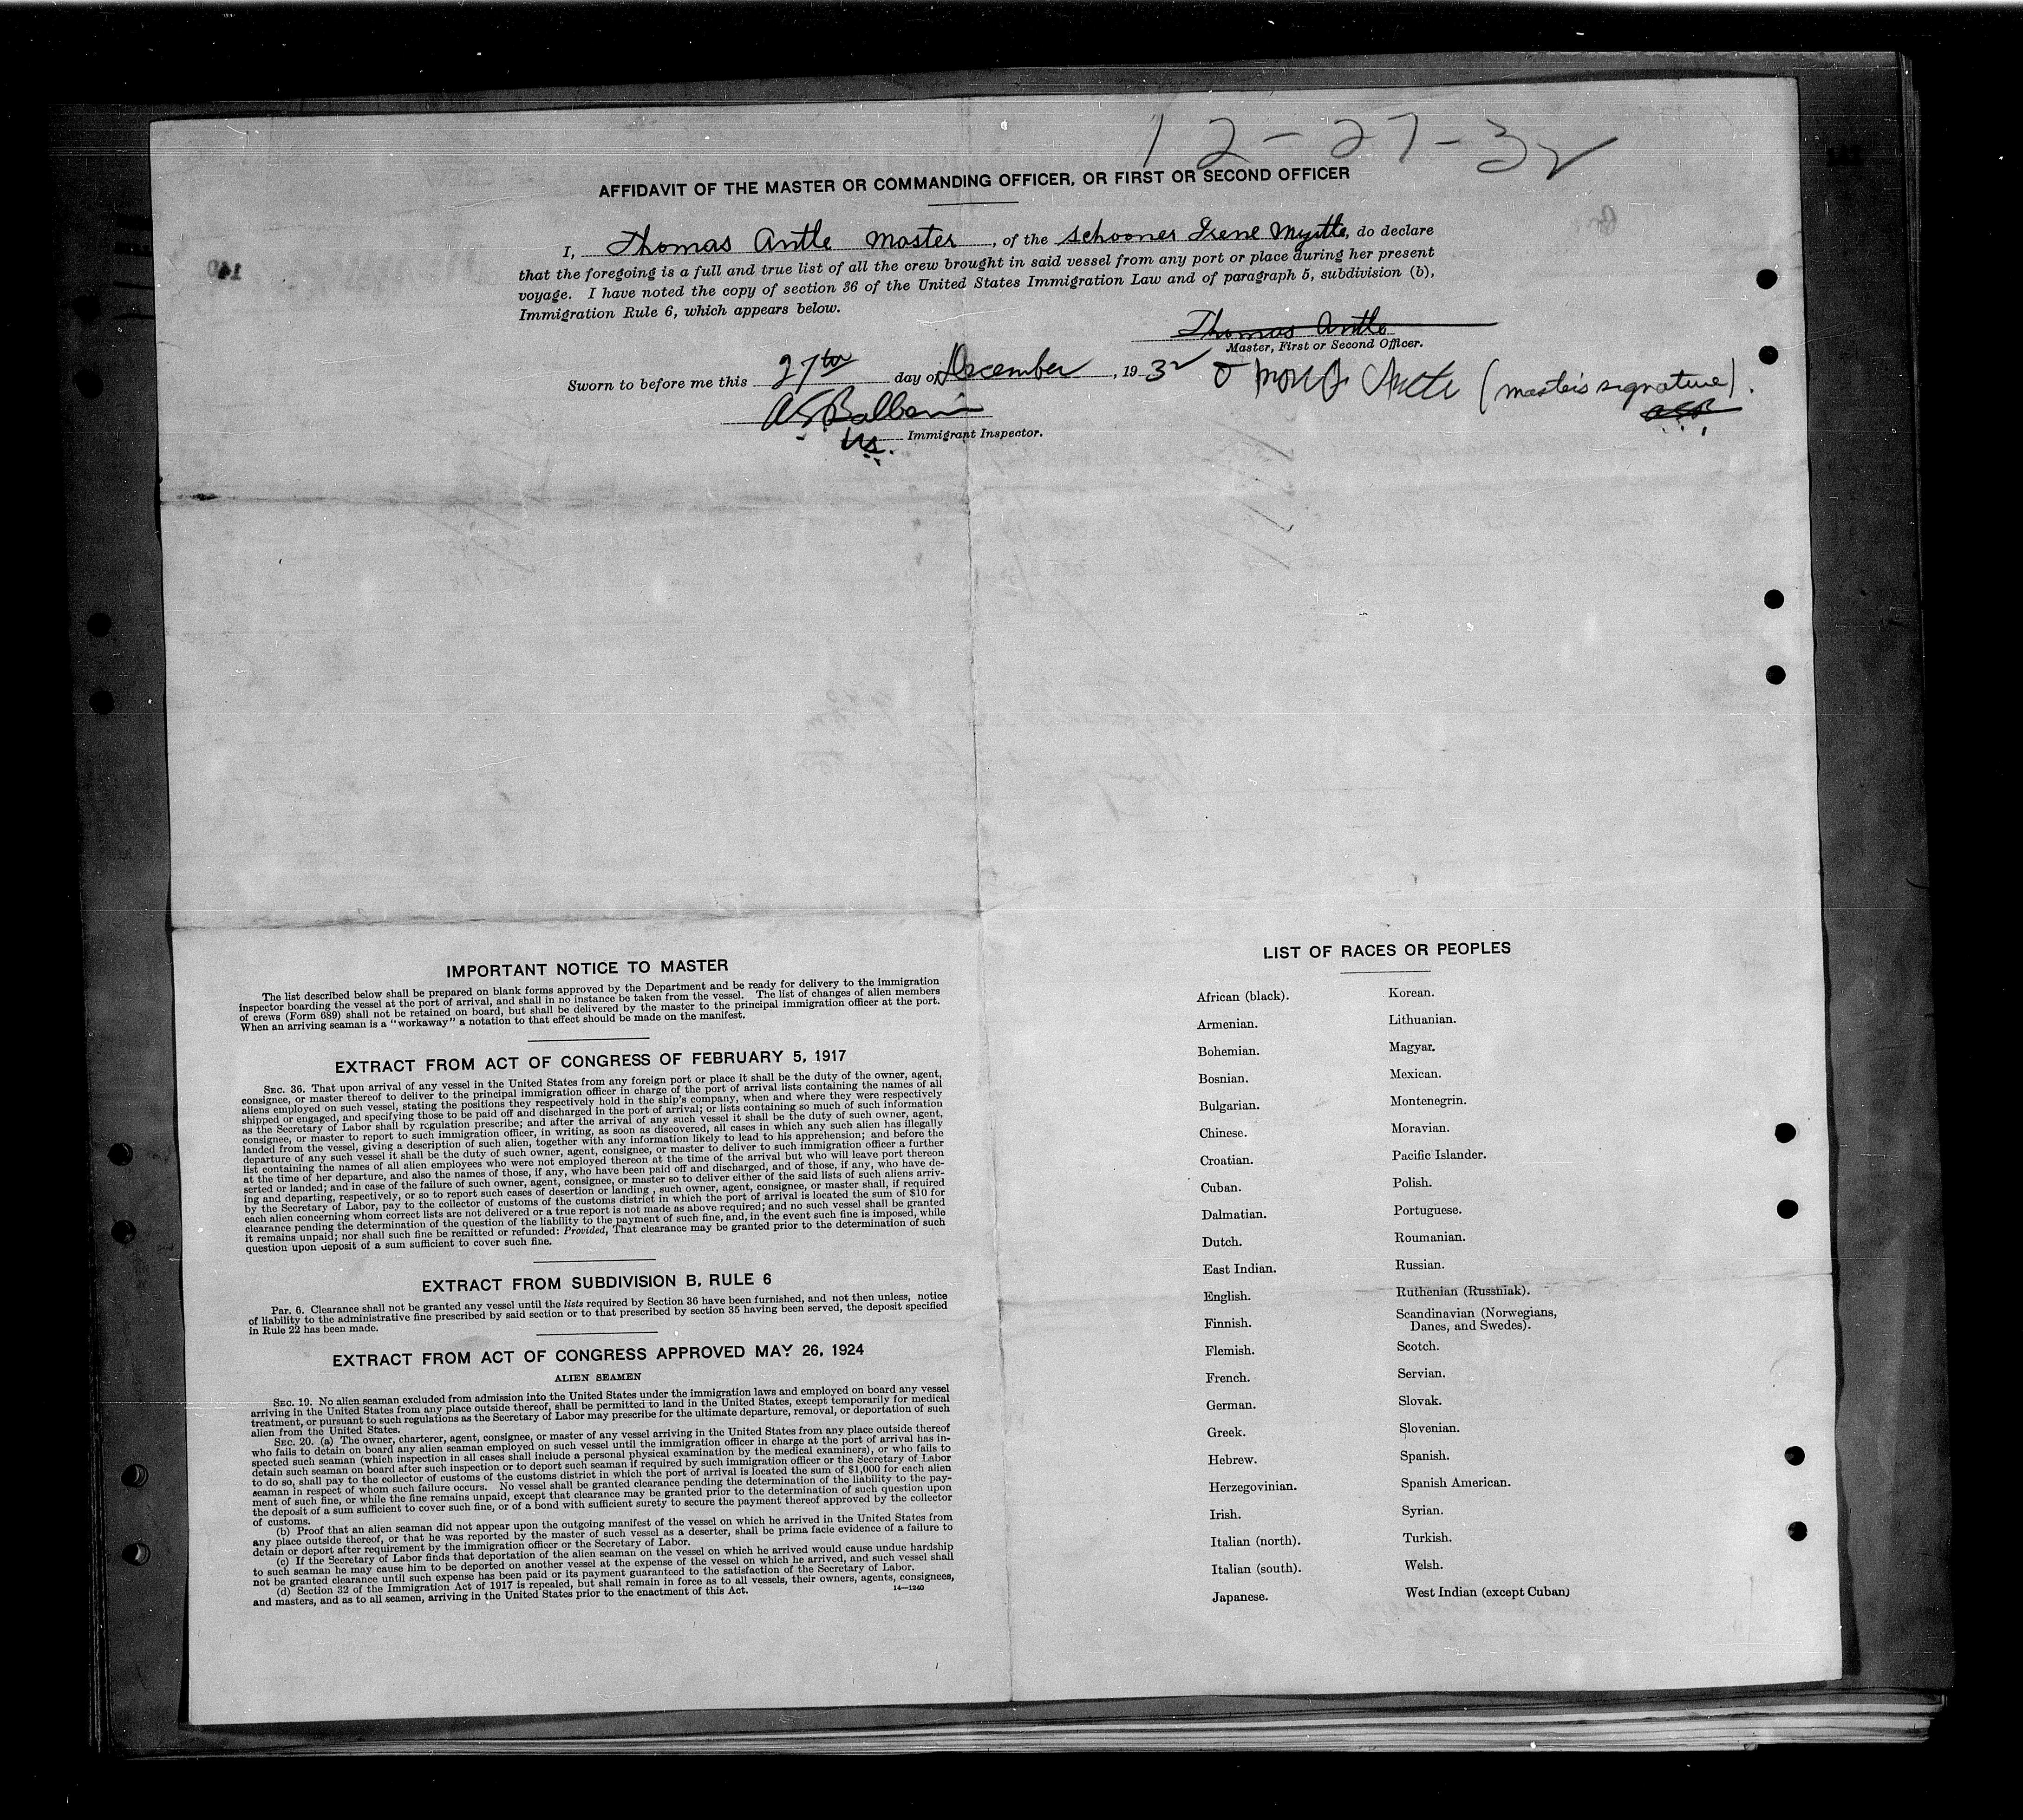 12-27-32
AFFIDAVIT OF THE MASTER OR COMMANDING OFFICER, OR FIRST OR SECOND OFFICER
I, Thomas Antle Master, of the schooner Irene Myrtle, do declare
that the foregoing is a full and true list of all the crew brought in said vessel from any port or place during her present
voyage. I have noted the copy of section 36 of the United States Immigration Law and of paragraph 5, subdivision (b),
Immigration Rule 6, which appears below.
Thomas Antle
Master, First or Second Officer.
Sworn to before me this 27th day of December, 1932
Antle (master's signature).
Immigrant Inspector.
140
IMPORTANT NOTICE TO MASTER
The list described below shall be prepared on blank forms approved by the Department and be ready for delivery to the immigration
inspector boarding the vessel at the port of arrival, and shall in no instance be taken from the vessel. The list of changes of alien members
of crews (Form 689) shall not be retained on board, but shall be delivered by the master to the principal immigration officer at the port.
When an arriving seaman is a "workaway" a notation to that effect should be made on the manifest.
EXTRACT FROM ACT OF CONGRESS OF FEBRUARY 5, 1917
SEC. 36. That upon arrival of any vessel in the United States from any foreign port or place it shall be the duty of the owner, agent,
consignee, or master thereof to deliver to the principal immigration officer in charge of the port of arrival lists containing the names of all
aliens employed on such vessel, stating the positions they respectively hold in the ship's company, when and where they were respectively
shipped or engaged, and specifying those to be paid off and discharged in the port of arrival; or lists containing so much of such information
as the Secretary of Labor shall by regulation prescribe; and after the arrival of any such vessel it shall be the duty of such owner, agent,
consignee, or master to report to such immigration officer, in writing, as soon as discovered, all cases in which any such alien has illegally
landed from the vessel, giving a description of such alien, together with any information likely to lead to his apprehension; and before the
departure of any such vessel it shall be the duty of such owner, agent, consignee, or master to deliver to such immigration officer a further
list containing the names of all alien employees who were not employed thereon at the time of the arrival but who will leave port thereon
at the time of her departure, and also the names of those, if any, who have been paid off and discharged, and of those, if any, who have de-
serted or landed; and in case of the failure of such owner, agent, consignee, or master so to deliver either of the said lists of such aliens arriv-
ing and departing, respectively, or so to report such cases of desertion or landing , such owner, agent, consignee, or master shall, if required
by the Secretary of Labor, pay to the collector of customs of the customs district in which the port of arrival is located the sum of $10 for
each alien concerning whom correct lists are not delivered or a true report is not made as above required; and no such vessel shall be granted
clearance pending the determination of the question of the liability to the payment of such fine, and, in the event such fine is imposed, while
it remains unpaid; nor shall such fine be remitted or refunded: Provided, That clearance may be granted prior to the determination of such
question upon deposit of a sum sufficient to cover such fine.
EXTRACT FROM SUBDIVISION B, RULE 6
PAR. 6. Clearance shall not be granted any vessel until the lists required by Section 36 have been furnished, and not then unless, notice
of liability to the administrative fine prescribed by said section or to that prescribed by section 35 having been served, the deposit specified
in Rule 22 has been made.
EXTRACT FROM ACT OF CONGRESS APPROVED MAY 26, 1924
ALIEN SEAMEN
SEC. 19. No alien seaman excluded from admission into the United States under the immigration laws and employed on board any vessel
arriving in the United States from any place outside thereof, shall be permitted to land in the United States, except temporarily for medical
treatment, or pursuant to such regulations as the Secretary of Labor may prescribe for the ultimate departure, removal, or deportation of such
alien from the United States.
SEC. 20. (a) The owner, charterer, agent, consignee, or master of any vessel arriving in the United States from any place outside thereof
who fails to detain on board any alien seaman employed on such vessel until the immigration officer in charge at the port of arrival has in-
spected such seaman (which inspection in all cases shall include a personal physical examination by the medical examiners), or who fails to
detain such seaman on board after such inspection or to deport such seaman if required by such immigration officer or the Secretary of Labor
to do so, shall pay to the collector of customs of the customs district in which the port of arrival is located the sum of $1,000 for each alien
seaman in respect of whom such failure occurs. No vessel shall be granted clearance pending the determination of the liability to the pay-
ment of such fine, or while the fine remains unpaid, except that clearance may be granted prior to the determination of such question upon
the deposit of a sum sufficient to cover such fine, or of a bond with sufficient surety to secure the payment thereof approved by the collector
of customs.
(b) Proof that an alien seaman did not appear upon the outgoing manifest of the vessel on which he arrived in the United States from
any place outside thereof, or that he was reported by the master of such vessel as a deserter, shall be prima facie evidence of a failure to
detain or deport after requirement by the immigration officer or the Secretary of Labor.
(c) If the Secretary of Labor finds that deportation of the alien seaman on the vessel on which he arrived would cause undue hardship
to such seaman he may cause him to be deported on another vessel at the expense of the vessel on which he arrived, and such vessel shall
not be granted clearance until such expense has been paid or its payment guaranteed to the satisfaction of the Secretary of Labor.
(d) Section 32 of the Immigration Act of 1917 is repealed, but shall remain in force as to all vessels, their owners, agents, consignees,
and masters, and as to all seamen, arriving in the United States prior to the enactment of this Act.
14—1240
LIST OF RACES OR PEOPLES
African (black).
Armenian.
Bohemian.
Bosnian.
Bulgarian.
Chinese.
Croatian.
Cuban.
Dalmatian.
Dutch.
East Indian.
English.
Finnish.
Flemish.
French.
German.
Greek.
Hebrew.
Herzegovinian.
Irish.
Italian (north).
Italian (south).
Japanese.
Korean.
Lithuanian.
Magyar.
Mexican.
Montenegrin.
Moravian.
Pacific Islander.
Polish.
Portuguese.
Roumanian.
Russian.
Ruthenian (Russniak).
Scandinavian (Norwegians,
Danes, and Swedes).
Scotch.
Servian.
Slovak.
Slovenian.
Spanish.
Spanish American.
Syrian.
Turkish.
Welsh.
West Indian (except Cuban)